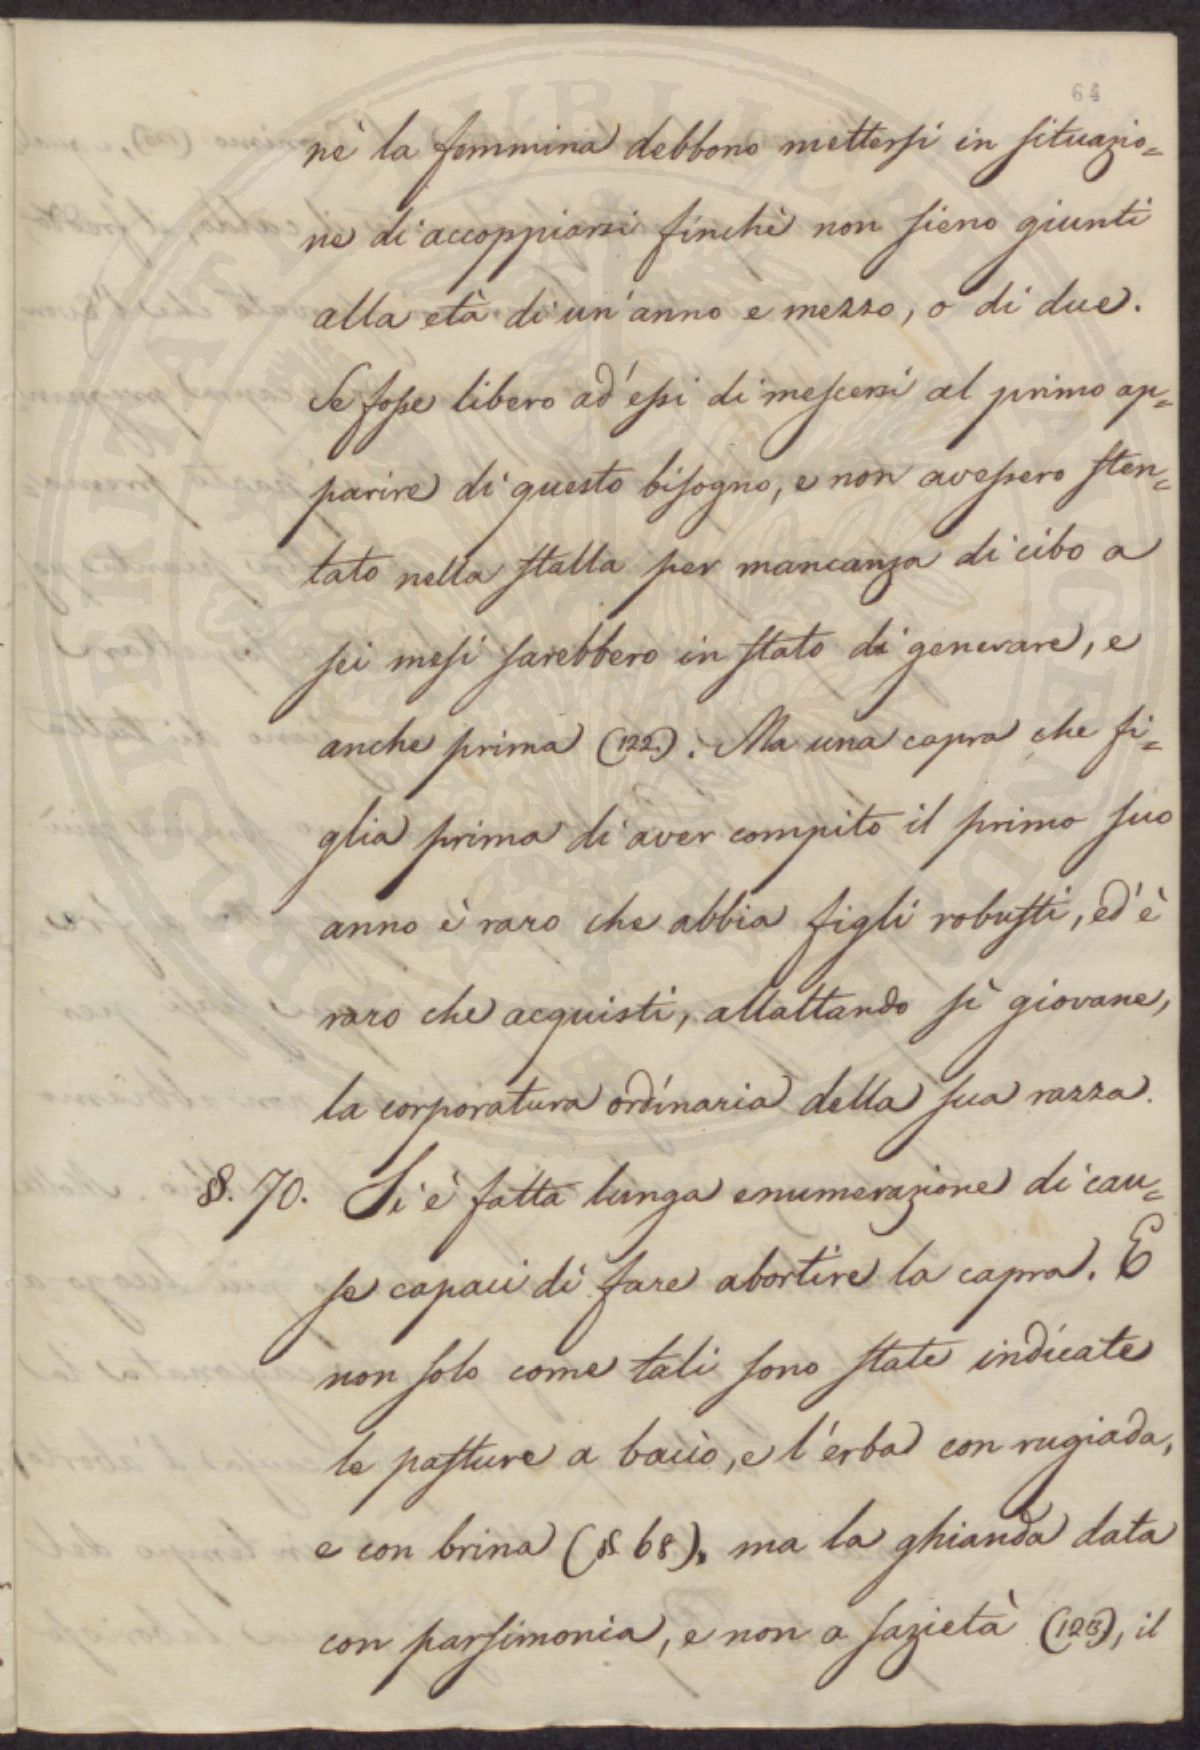 64
nè la femmina debbono mettersi in situazio=
ne di accoppiarsi finchè non sieno giunti
alla età di un'anno e mezzo, o di due.
Se fosse libero ad'essi di mescersi al primo ap=
parire di questo bisogno, e non avessero sten=
tato nella stalla per mancanza di cibo a
sei mesi sarebbero in stato di generare, e
anche prima (122). Ma una capra che fi=
glia prima di aver compito il primo suo
anno è raro che abbia figli robusti, ed'è
raro che acquisti, allattando sì giovane,
la corporatura ordinaria della sua razza.
§. 70. Si è fatta lunga enumerazione di cau=
se capaci di fare abortire la capra. E
non solo come tali sono state indicate
le pasture a bacìo, e l'erba con rugiada,
e con brina (§. 68), ma la ghianda data
con parsimonia, e non a sazietà (123), il